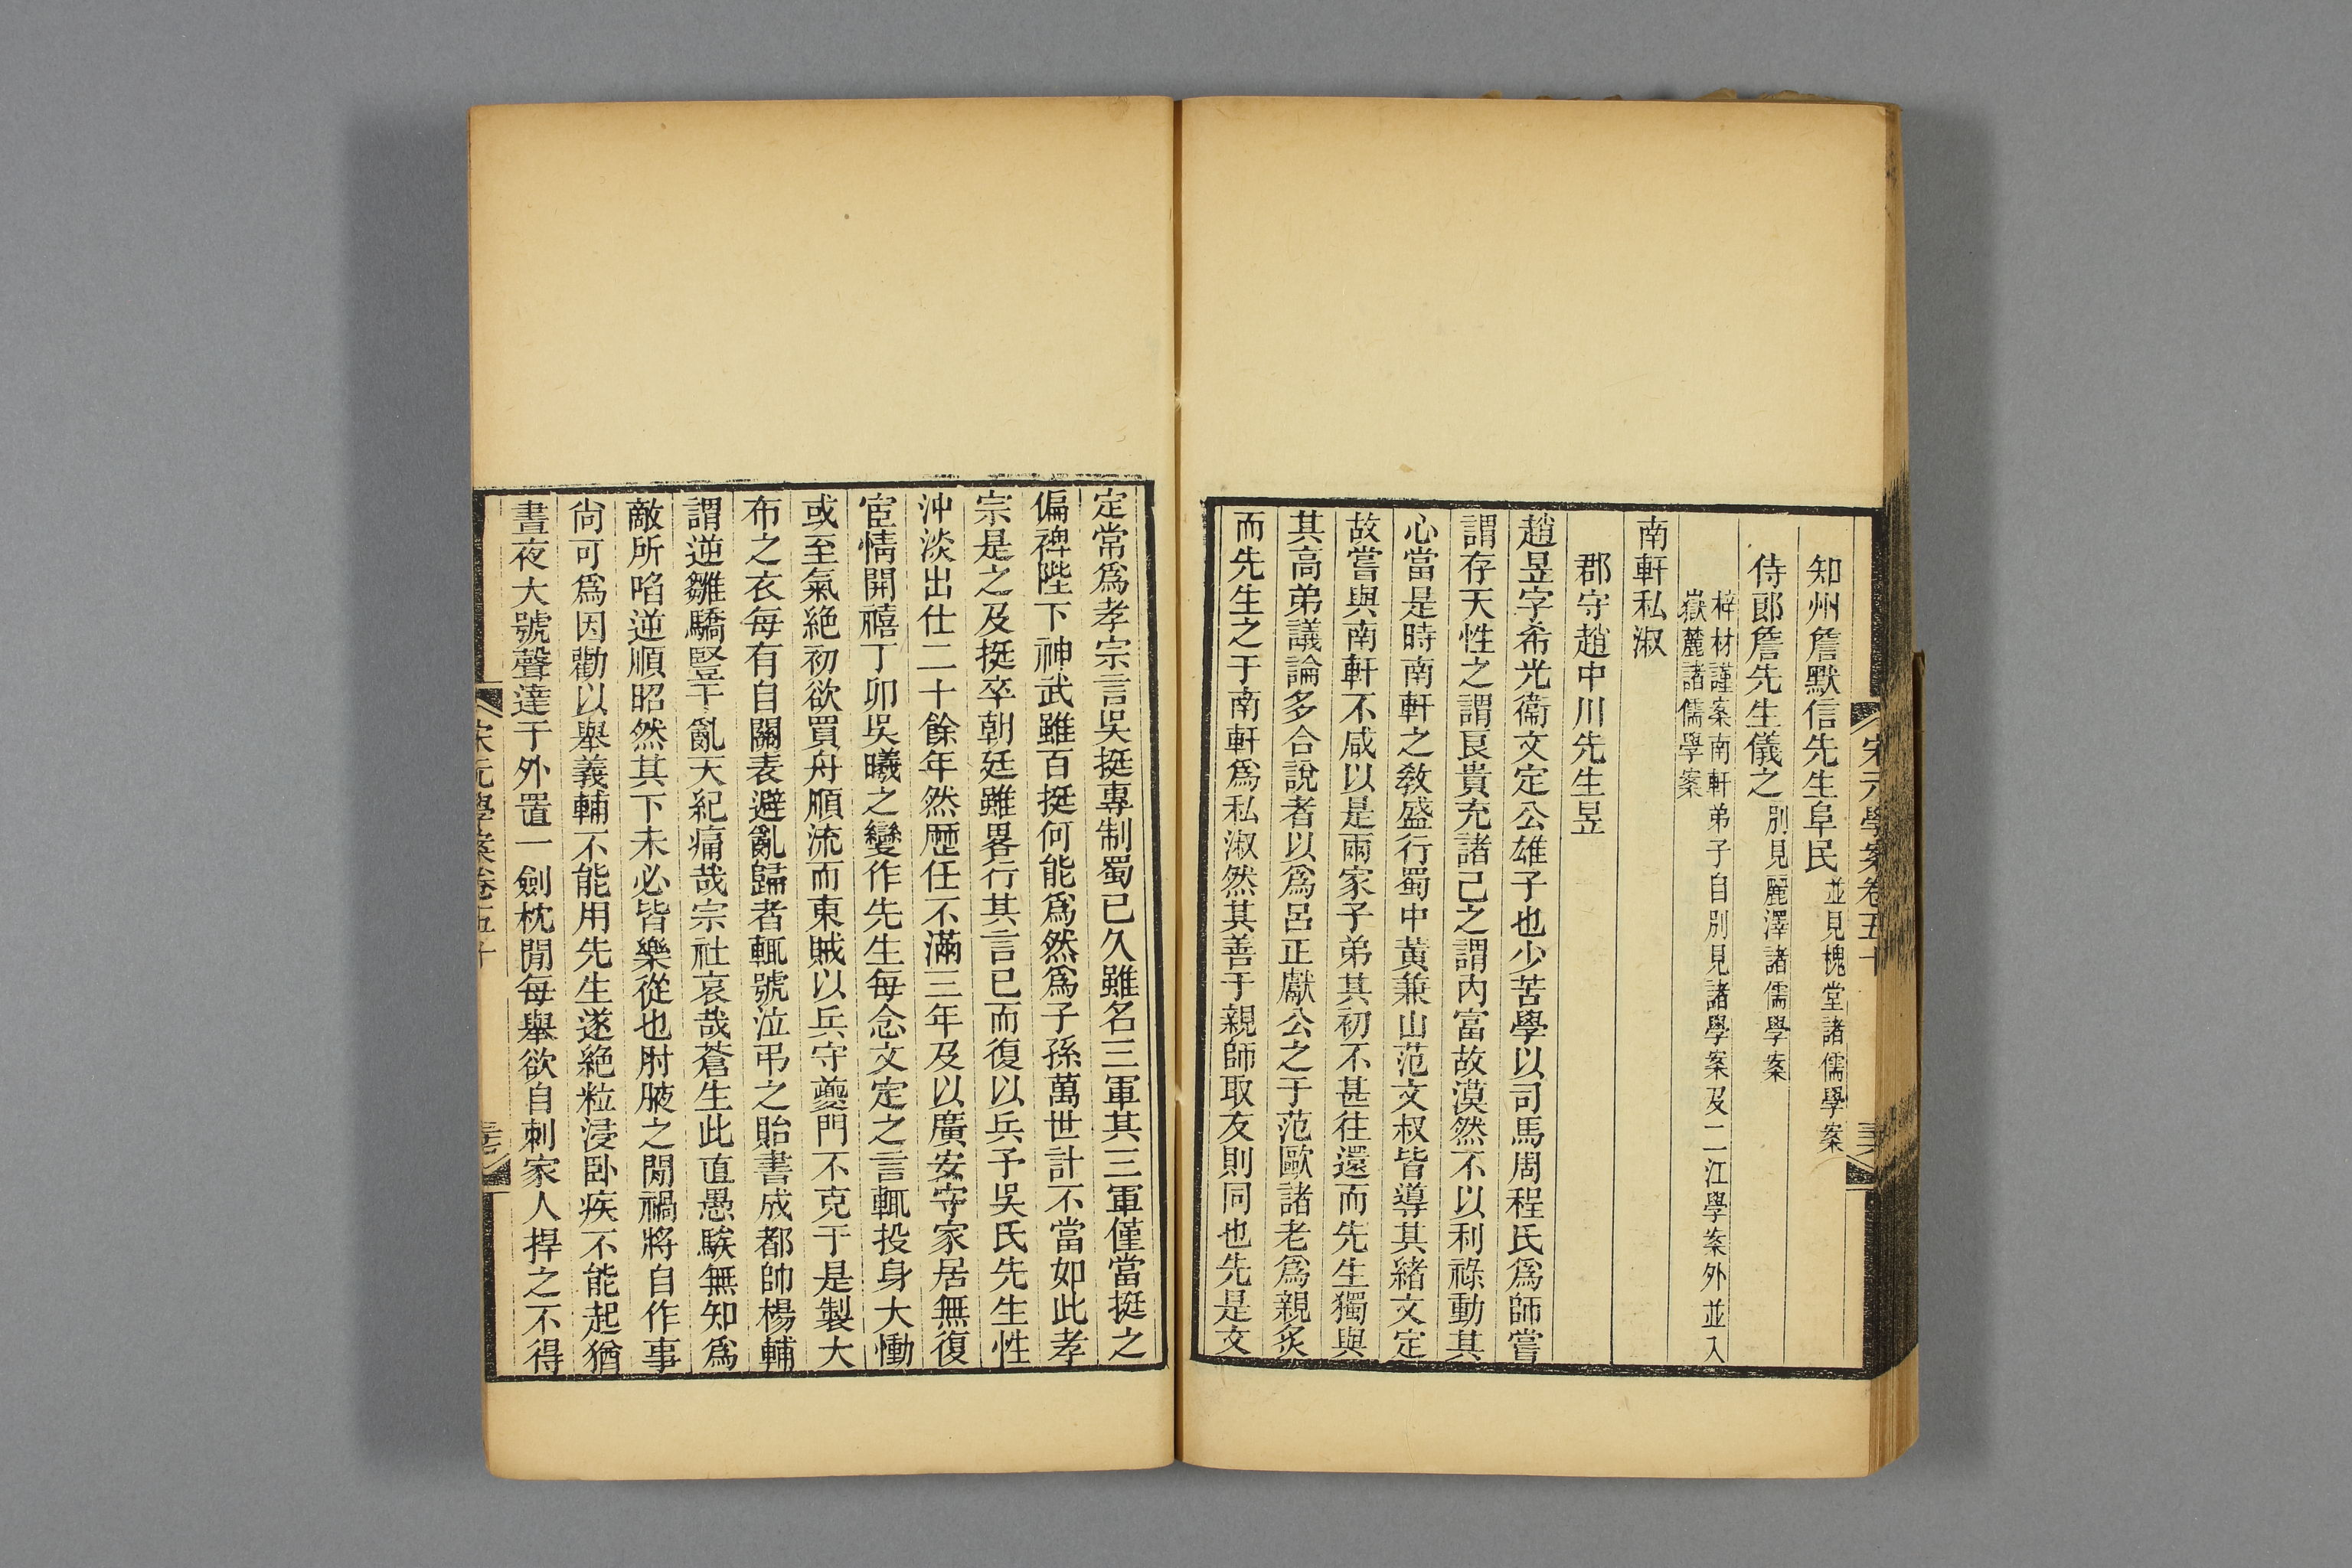 宋元學案卷五十
知州詹默信先生阜民並見槐堂諸儒學案
侍郎詹先生儀之別見麗澤諸儒學案
梓材謹案南軒弟子自別見諸學案及二江學案外並入
嶽麓諸儒學案
南軒私淑
郡守趙中川先生昱
趙昱字希光衞文定公雄子也少苦學以司馬周程氏爲師嘗
謂存天性之謂良貴充諸己之謂內富故漠然不以利祿動其
心當是時南軒之敎盛行蜀中黃兼山范文叔皆導其緒文定
故嘗與南軒不咸以是兩家子弟其初不甚往還而先生獨與
其高弟議論多合說者以爲呂正獻公之于范歐諸老爲親炙
而先生之于南軒爲私淑然其善于親師取友則同也先是文
定常爲孝宗言吳挺專制蜀已久雖名三軍其三軍僅當挺之
偏裨陛下神武雖百挺何能爲然爲子孫萬世計不當如此孝
宗是之及挺卒朝廷雖畧行其言已而復以兵予吳氏先生性
沖淡出仕二十餘年然歷任不滿三年及以廣安守家居無復
宦情開禧丁卯吳曦之變作先生每念文定之言輒投身大慟
或至氣絕初欲買舟順流而東賊以兵守夔門不克于是製大
布之衣每有自關表避亂歸者輒號泣弔之貽書成都帥楊輔
謂逆雛驕豎干亂天紀痛哉宗社哀哉蒼生此直愚騃無知爲
敵所啗逆順昭然其下未必皆樂從也肘腋之閒禍將自作事
尙可爲因勸以舉義輔不能用先生遂絕粒浸卧疾不能起猶
晝夜大號聲達于外置一劍枕閒每舉欲自刺家人捍之不得
宋元學案卷五十